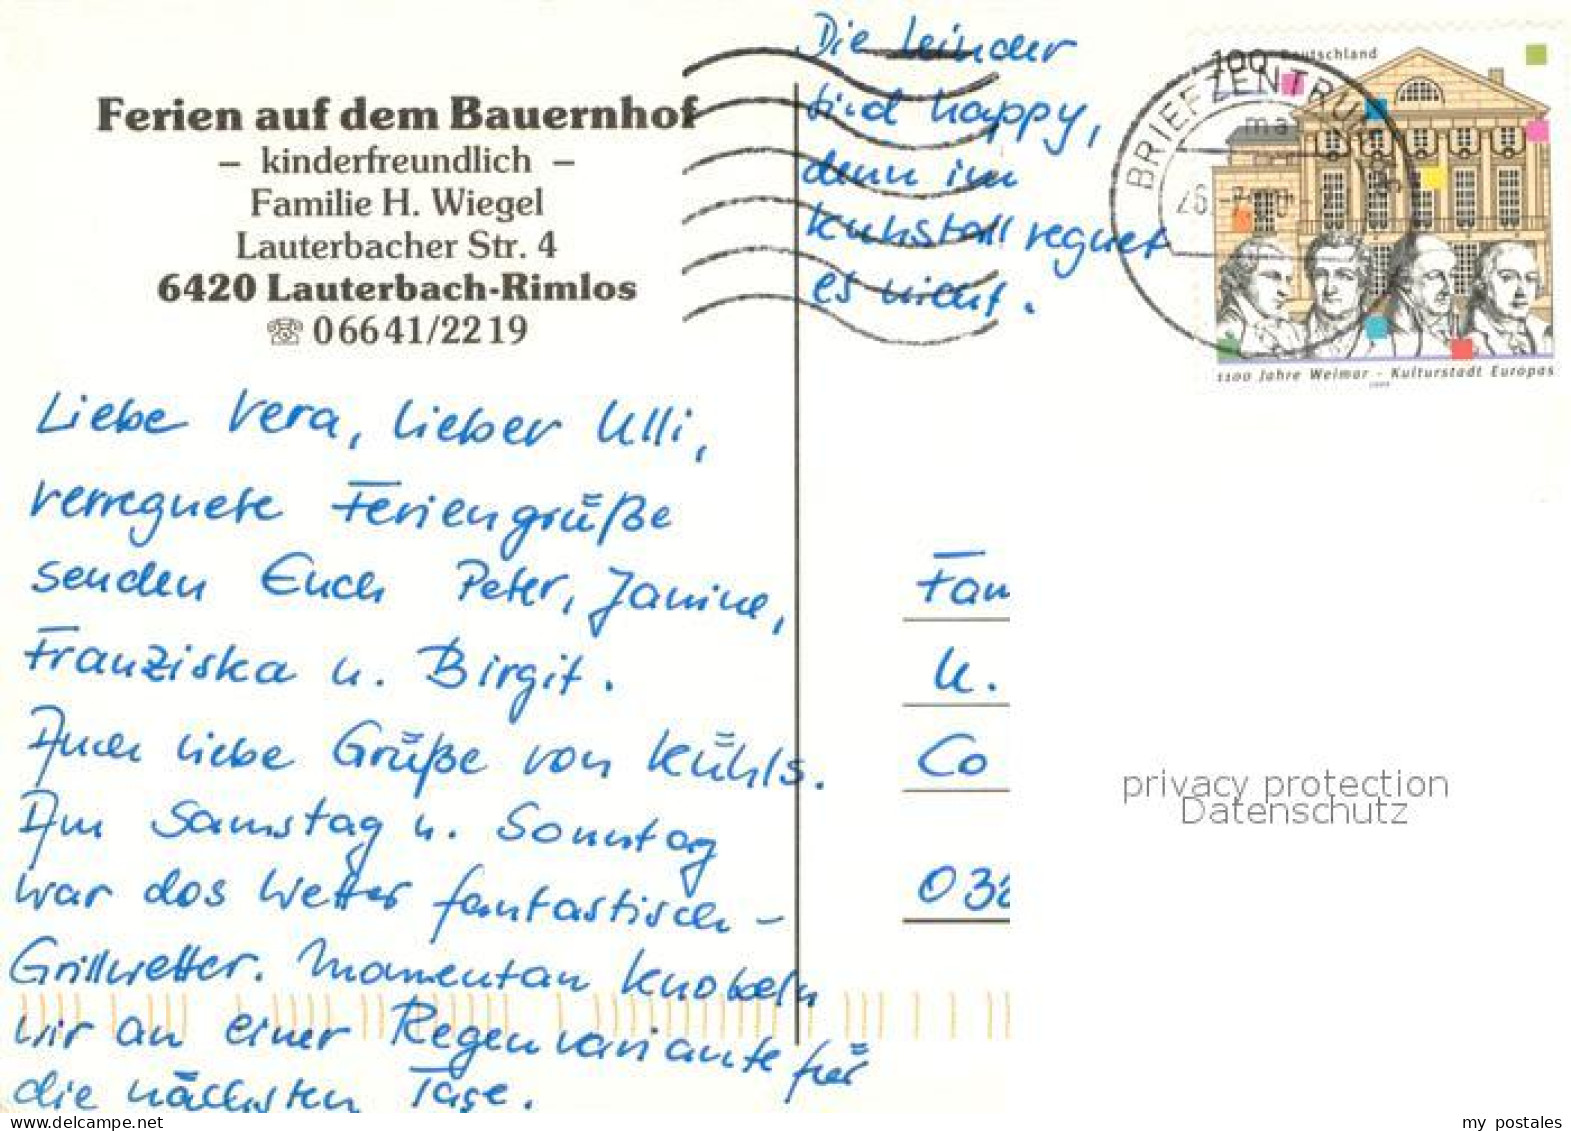 Ferien auf dem Bauernhof
– kinderfreundlich –
Familie H. Wiegel
Lauterbacher Str. 4
6420 Lauterbach-Rimlos
☏ 06641/2219
Liebe Vera, lieber Ulli,
verregnete Feriengrüße
senden Euch Peter, Janine,
Franziska u. Birgit.
Auch liebe Grüße von Kühls.
Am Samstag u. Sonntag
war das Wetter fantastisch –
Grillwetter. Momentan knobeln
wir an einer Regenvariante für
die nächsten Tage.
Die Kinder
sind happy,
denn im
Kuhstall regnet
es nicht.
100 Deutschland
BRIEFZENTRUM
1100 Jahre Weimar - Kulturstadt Europas
Fam
U.
Co
03
privacy protection
Datenschutz
www.delcampe.net
my_postales